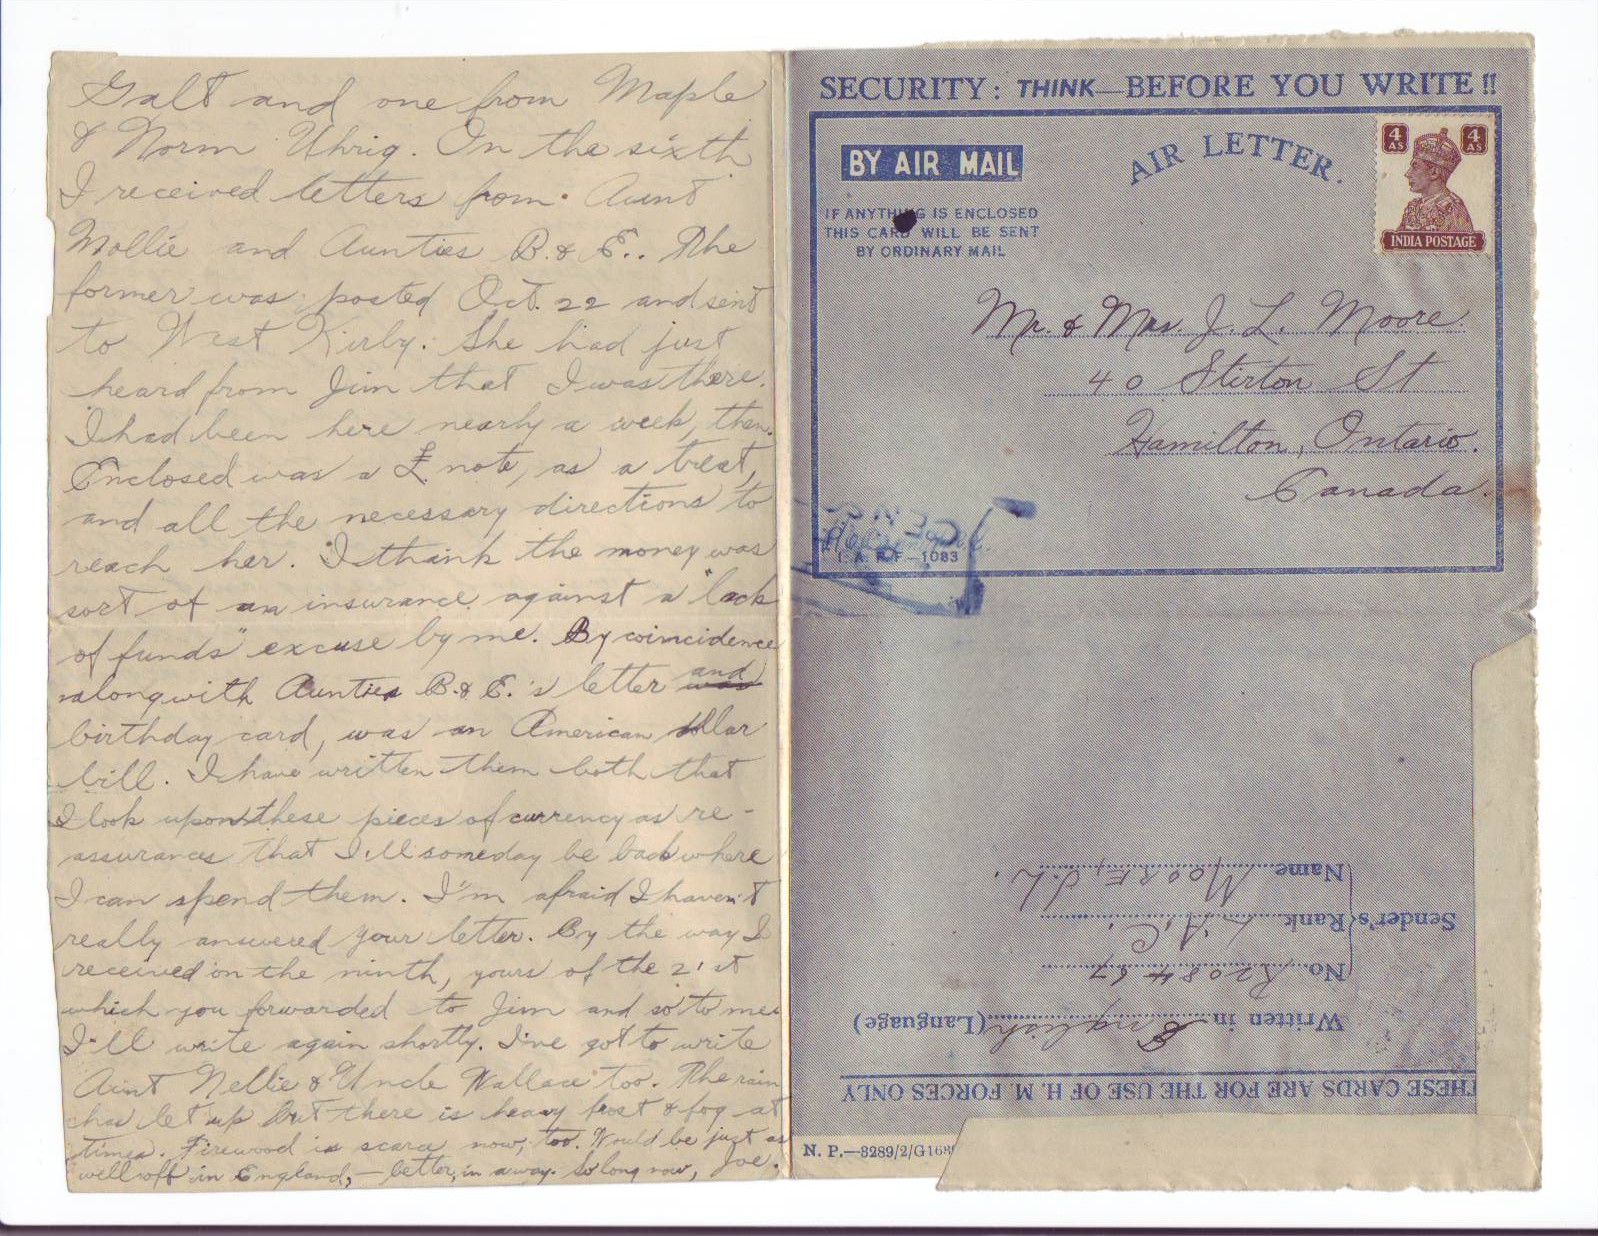 Galt and one from Maple
& Norm Uhrig. On the sixth
I received letters from Aunt
Mollie and Aunties B. & E.. The
former was posted Oct. 22 and sent
to West Kirby. She had just
heard from Jim that I was there.
I had been here nearly a week, then.
Enclosed was a £ note, as a treat,
and all the necessary directions to
reach her. I think the money was
sort of an insurance against a "lack
of funds" excuse by me. By coincidence
along with Aunties B. & E.'s letter and
birthday card, was an American dollar
bill. I have written them both that
I look upon these pieces of currency as re-
assurances that I'll someday be back where
I can spend them. I'm afraid I haven't
really answered your letter. By the way I
received on the ninth, yours of the 21st
which you forwarded to Jim and so to me.
I'll write again shortly. I've got to write
Aunt Nellie & Uncle Wallace too. The rain
has let up but there is heavy frost & fog at
times. Firewood is scarce now, too. Would be just as
well off in England, – better, in a way. So long now, Joe.
SECURITY: THINK—BEFORE YOU WRITE!!
BY AIR MAIL
AIR LETTER.
4 AS
4 AS
INDIA POSTAGE
IF ANYTHING IS ENCLOSED
THIS CARD WILL BE SENT
BY ORDINARY MAIL
Mr. & Mrs. J. L. Moore
40 Stirton St
Hamilton, Ontario.
Canada.
I. A. F. F.—1083
THESE CARDS ARE FOR THE USE OF H. M. FORCES ONLY
Written in English (Language)
Sender's
No. R208467
Rank L.A.C.
Name MOORE, J.L.
N. P.—8289/2/G168